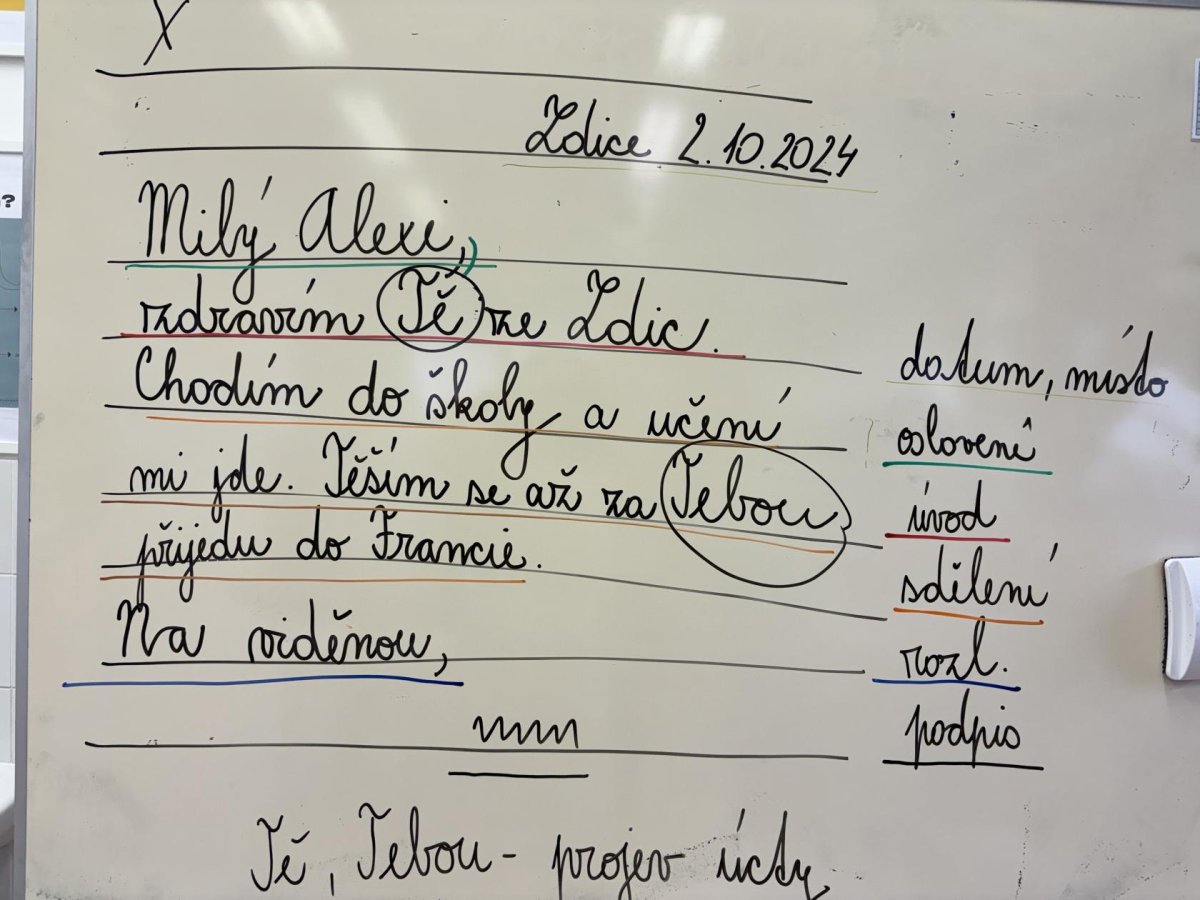 X
Zdice 2.10.2024
Milý Alexi,
zdravím Tě ze Zdic.
Chodím do školy a učení
mi jde. Těším se až za Tebou
přijedu do Francie.
Na viděnou,
datum, místo
oslovení
úvod
sdělení
rozl.
podpis
Tě, Tebou - projev úcty
?